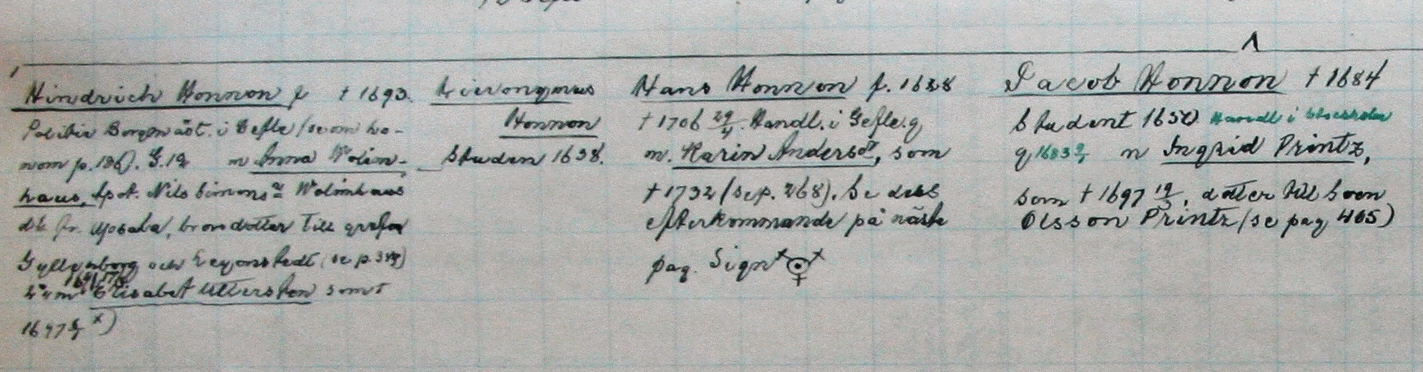 Hindrich Honnon f † 1693.
Politie Borgmäst. i Gefle (se om ho-
nom p. 136). G. 1º m Anna Wolim-
haus, Apot. Nils Simons ⁿ Wolimhaus
dtr fr. Upsala, brorsdotter till grefvar
Gyllenborg och Leyonstedt (se p. 388)
2º m Elisabet Utterston som †
1697 x)
Hieronymus
Honnon
Studen 1638.
Hans Honnon f. 1638
† 1706 29/4. Handl. i Gefle. g
m. Karin Andersdr, som
† 1732 (se p. 268). Se dess
efterkommande på näste
pag. Sign
Jacob Honnon † 1684
Student 1650 Handl i Stockholm
g 1683 m Ingrid Printz,
som † 1697, dotter till Sven
Olsson Printz (se pag 405)